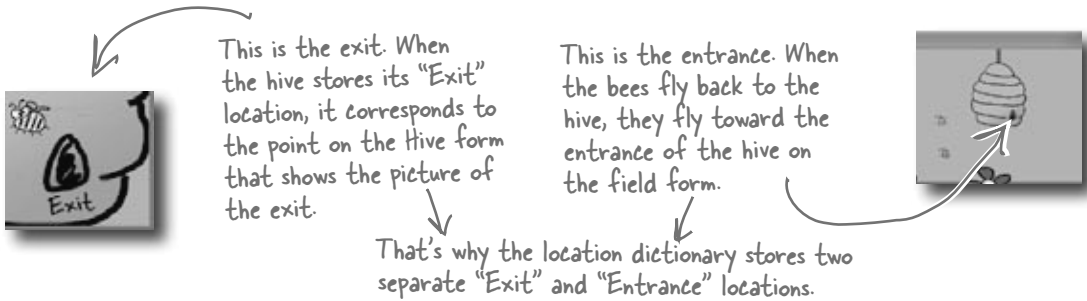 This is the exit. When
the hive stores its “Exit”
location, it corresponds to
the point on the Hive form
that shows the picture of
the exit.
This is the entrance. When
the bees fly back to the
hive, they fly toward the
entrance of the hive on
the field form.
Exit
That's why the location dictionary stores two
separate “Exit” and “Entrance” locations.